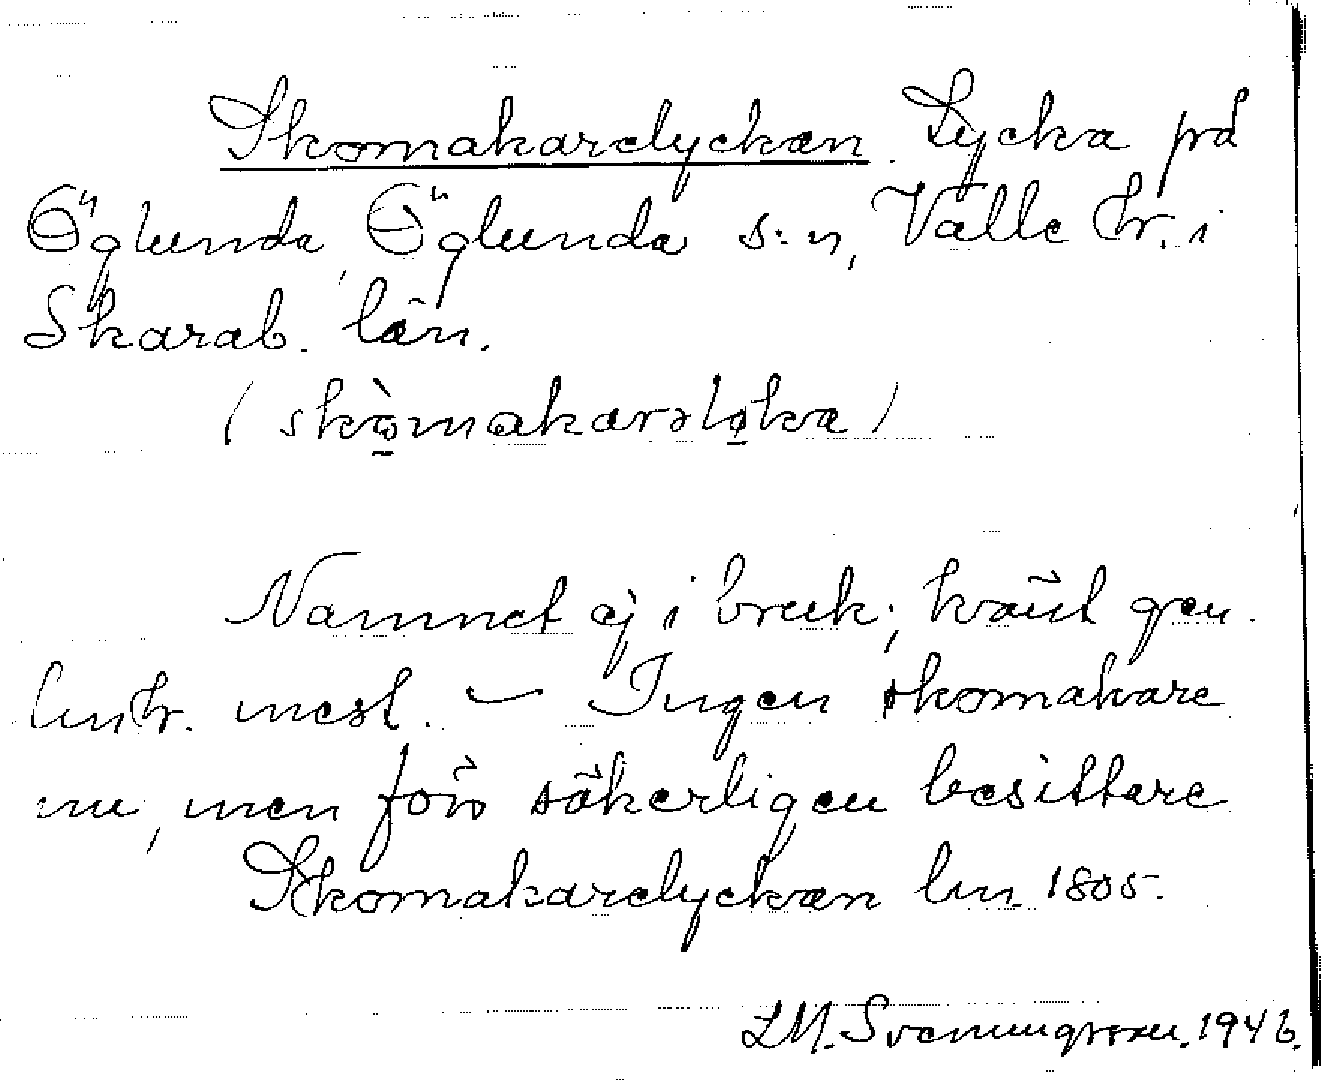 Skomakarelyckan. Lycka på
Öglunda, Öglunda s:n, Valle hr. i
Skarab. län.
(skòmakarəløka)
Namnet ej i bruk; känt gen.
lmtr. mest. — Ingen skomakare
nu, men förr säkerligen besittare
Skomakarelyckan lm 1805.
Svenungsson. 1946.